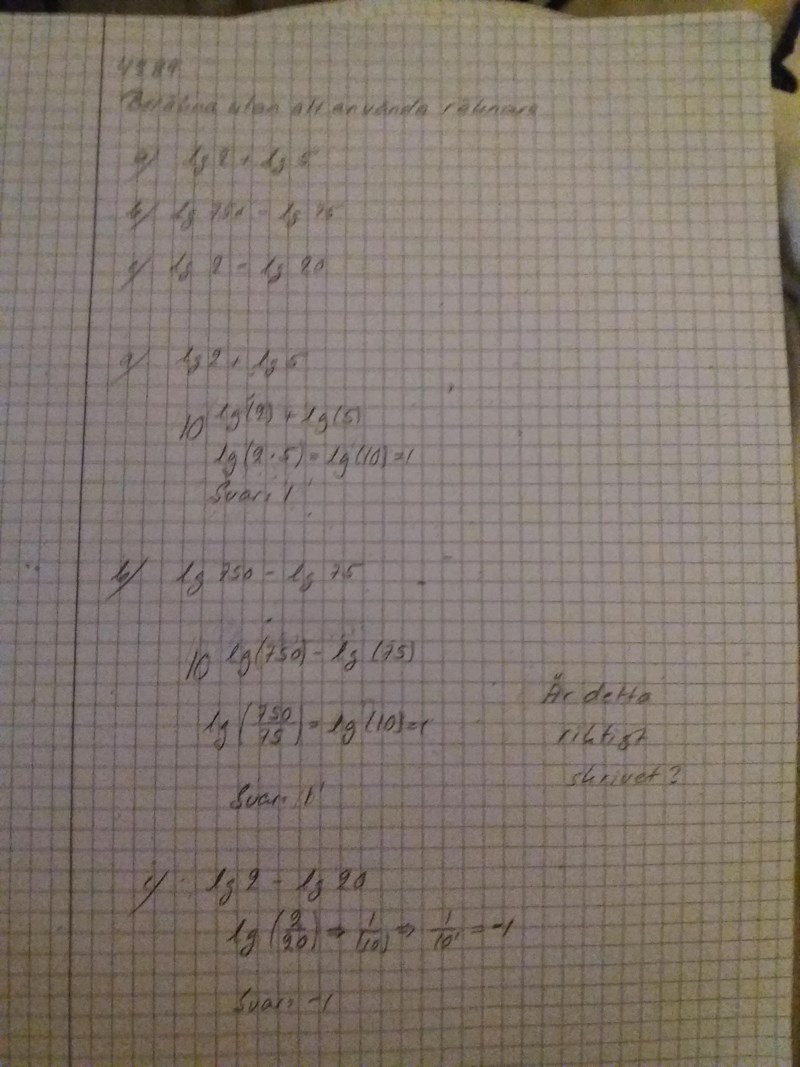 4389
Beräkna utan att använda räknare
a) lg 2 + lg 5
b) lg 750 - lg 75
c) lg 2 - lg 20
a) lg 2 + lg 5
10 lg(2) + lg(5)
lg(2·5) = lg(10) = 1
Svar: 1
b) lg 750 - lg 75
10 lg(750) - lg(75)
lg(750/75) = lg(10) = 1
Svar: 1
Är detta
riktigt
skrivet?
c) lg 2 - lg 20
lg(2/20) ⇒ 1/(10) ⇒ 1/10¹ = -1
Svar: -1